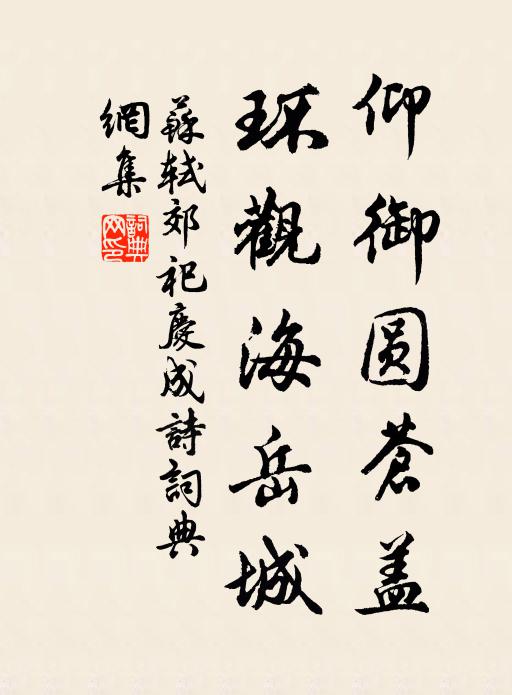 仰御圆蒼盖
环觀海岳城
蘇軾郊祀慶成詩詞典
網集
詞典網印